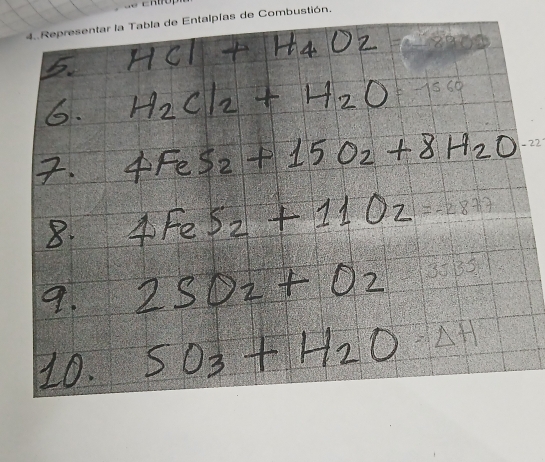 de Entropía
4. Representar la Tabla de Entalpías de Combustión.
5. HCl + H4O2
6. H2Cl2 + H2O = -1560
7. 4FeS2 + 15O2 + 8H2O -22
8. 4FeS2 + 11O2 = -2877
9. 2SO2 + O2 3535
10. SO3 + H2O = ΔH